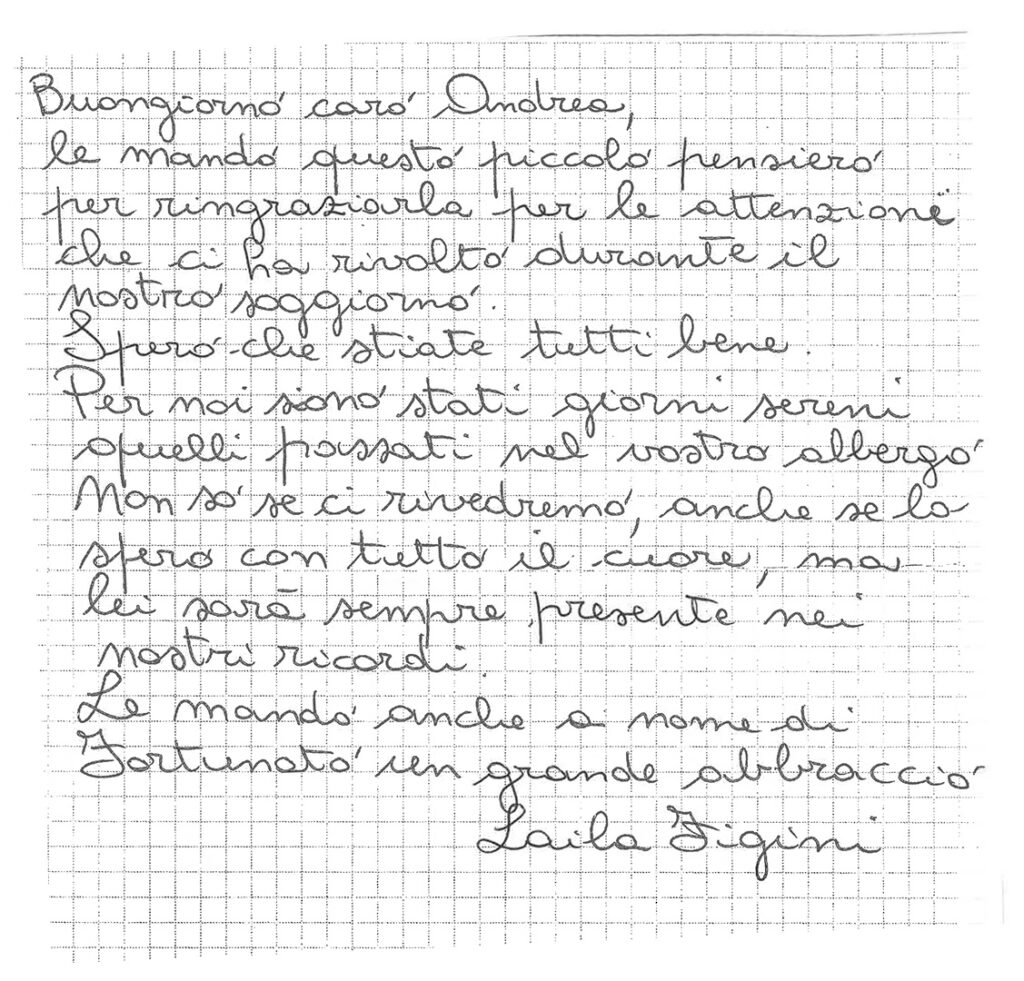 Buongiorno caro Andrea,
le mando questo piccolo pensiero
per ringraziarla per le attenzione
che ci ha rivolto durante il
nostro soggiorno.
Spero che stiate tutti bene.
Per noi siono stati giorni sereni
quelli passati nel vostro albergo
Non so se ci rivedremo, anche se lo
spero con tutto il cuore, ma
lei sarà sempre presente nei
nostri ricordi.
Le mando anche a nome di
Fortunato un grande abbraccio
Laila Figini